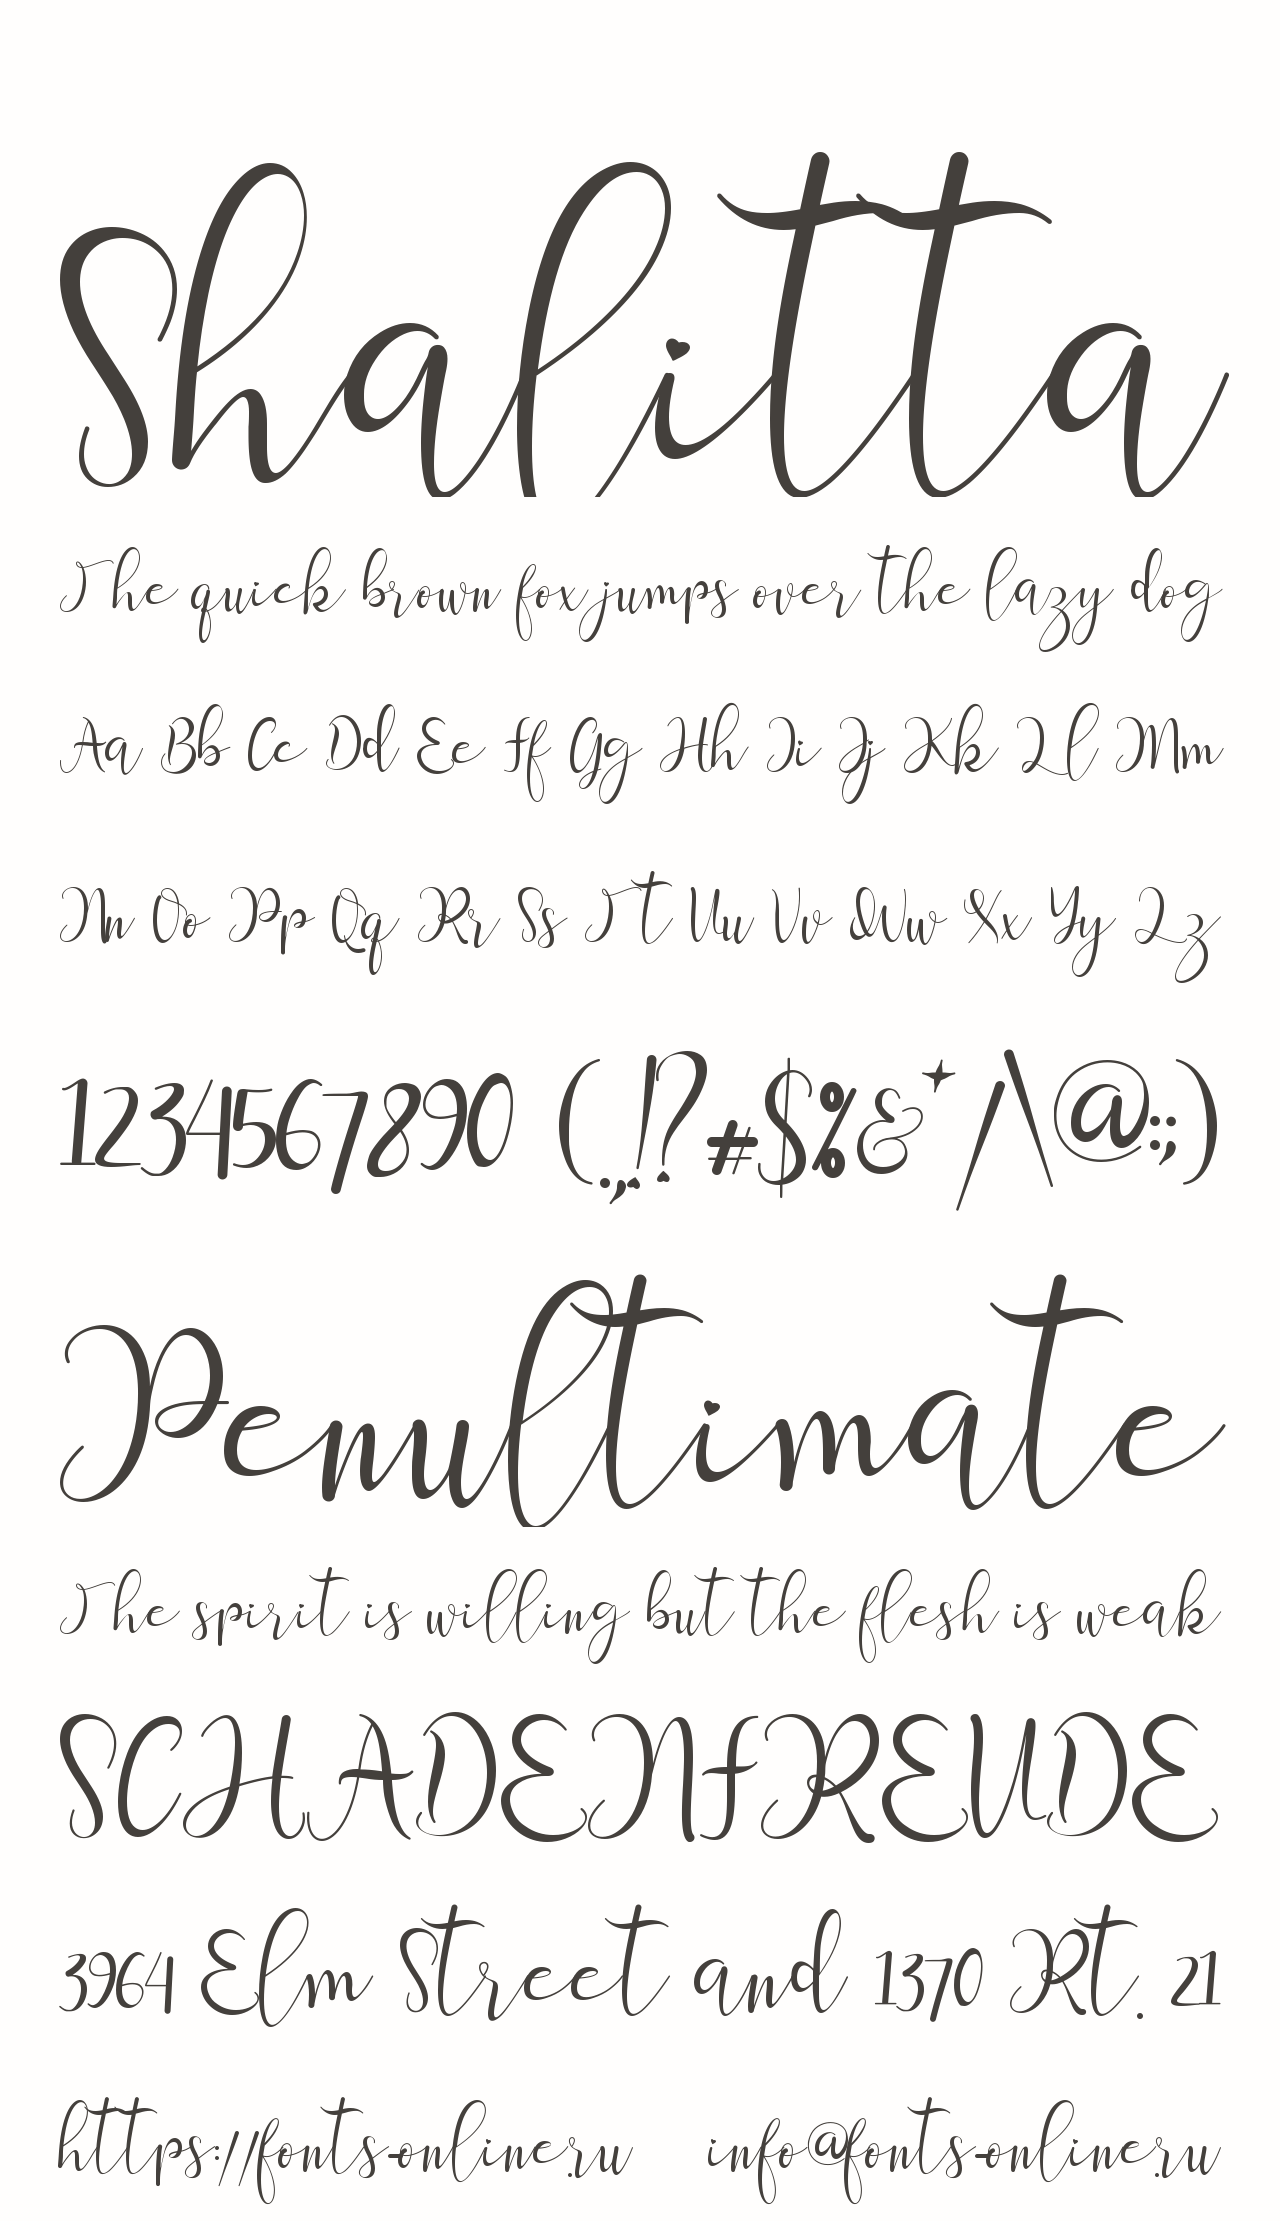 Shalitta
The quick brown fox jumps over the lazy dog
Aa Bb Cc Dd Ee Ff Gg Hh Ii Jj Kk Ll Mm
Nn Oo Pp Qq Rr Ss Tt Uu Vv Ww Xx Yy Zz
1234567890 (.,!?#$%&*/\@:;)
Penultimate
The spirit is willing but the flesh is weak
SCHADENFREUDE
3964 Elm Street and 1370 Rt. 21
https://fonts-online.ru info@fonts-online.ru